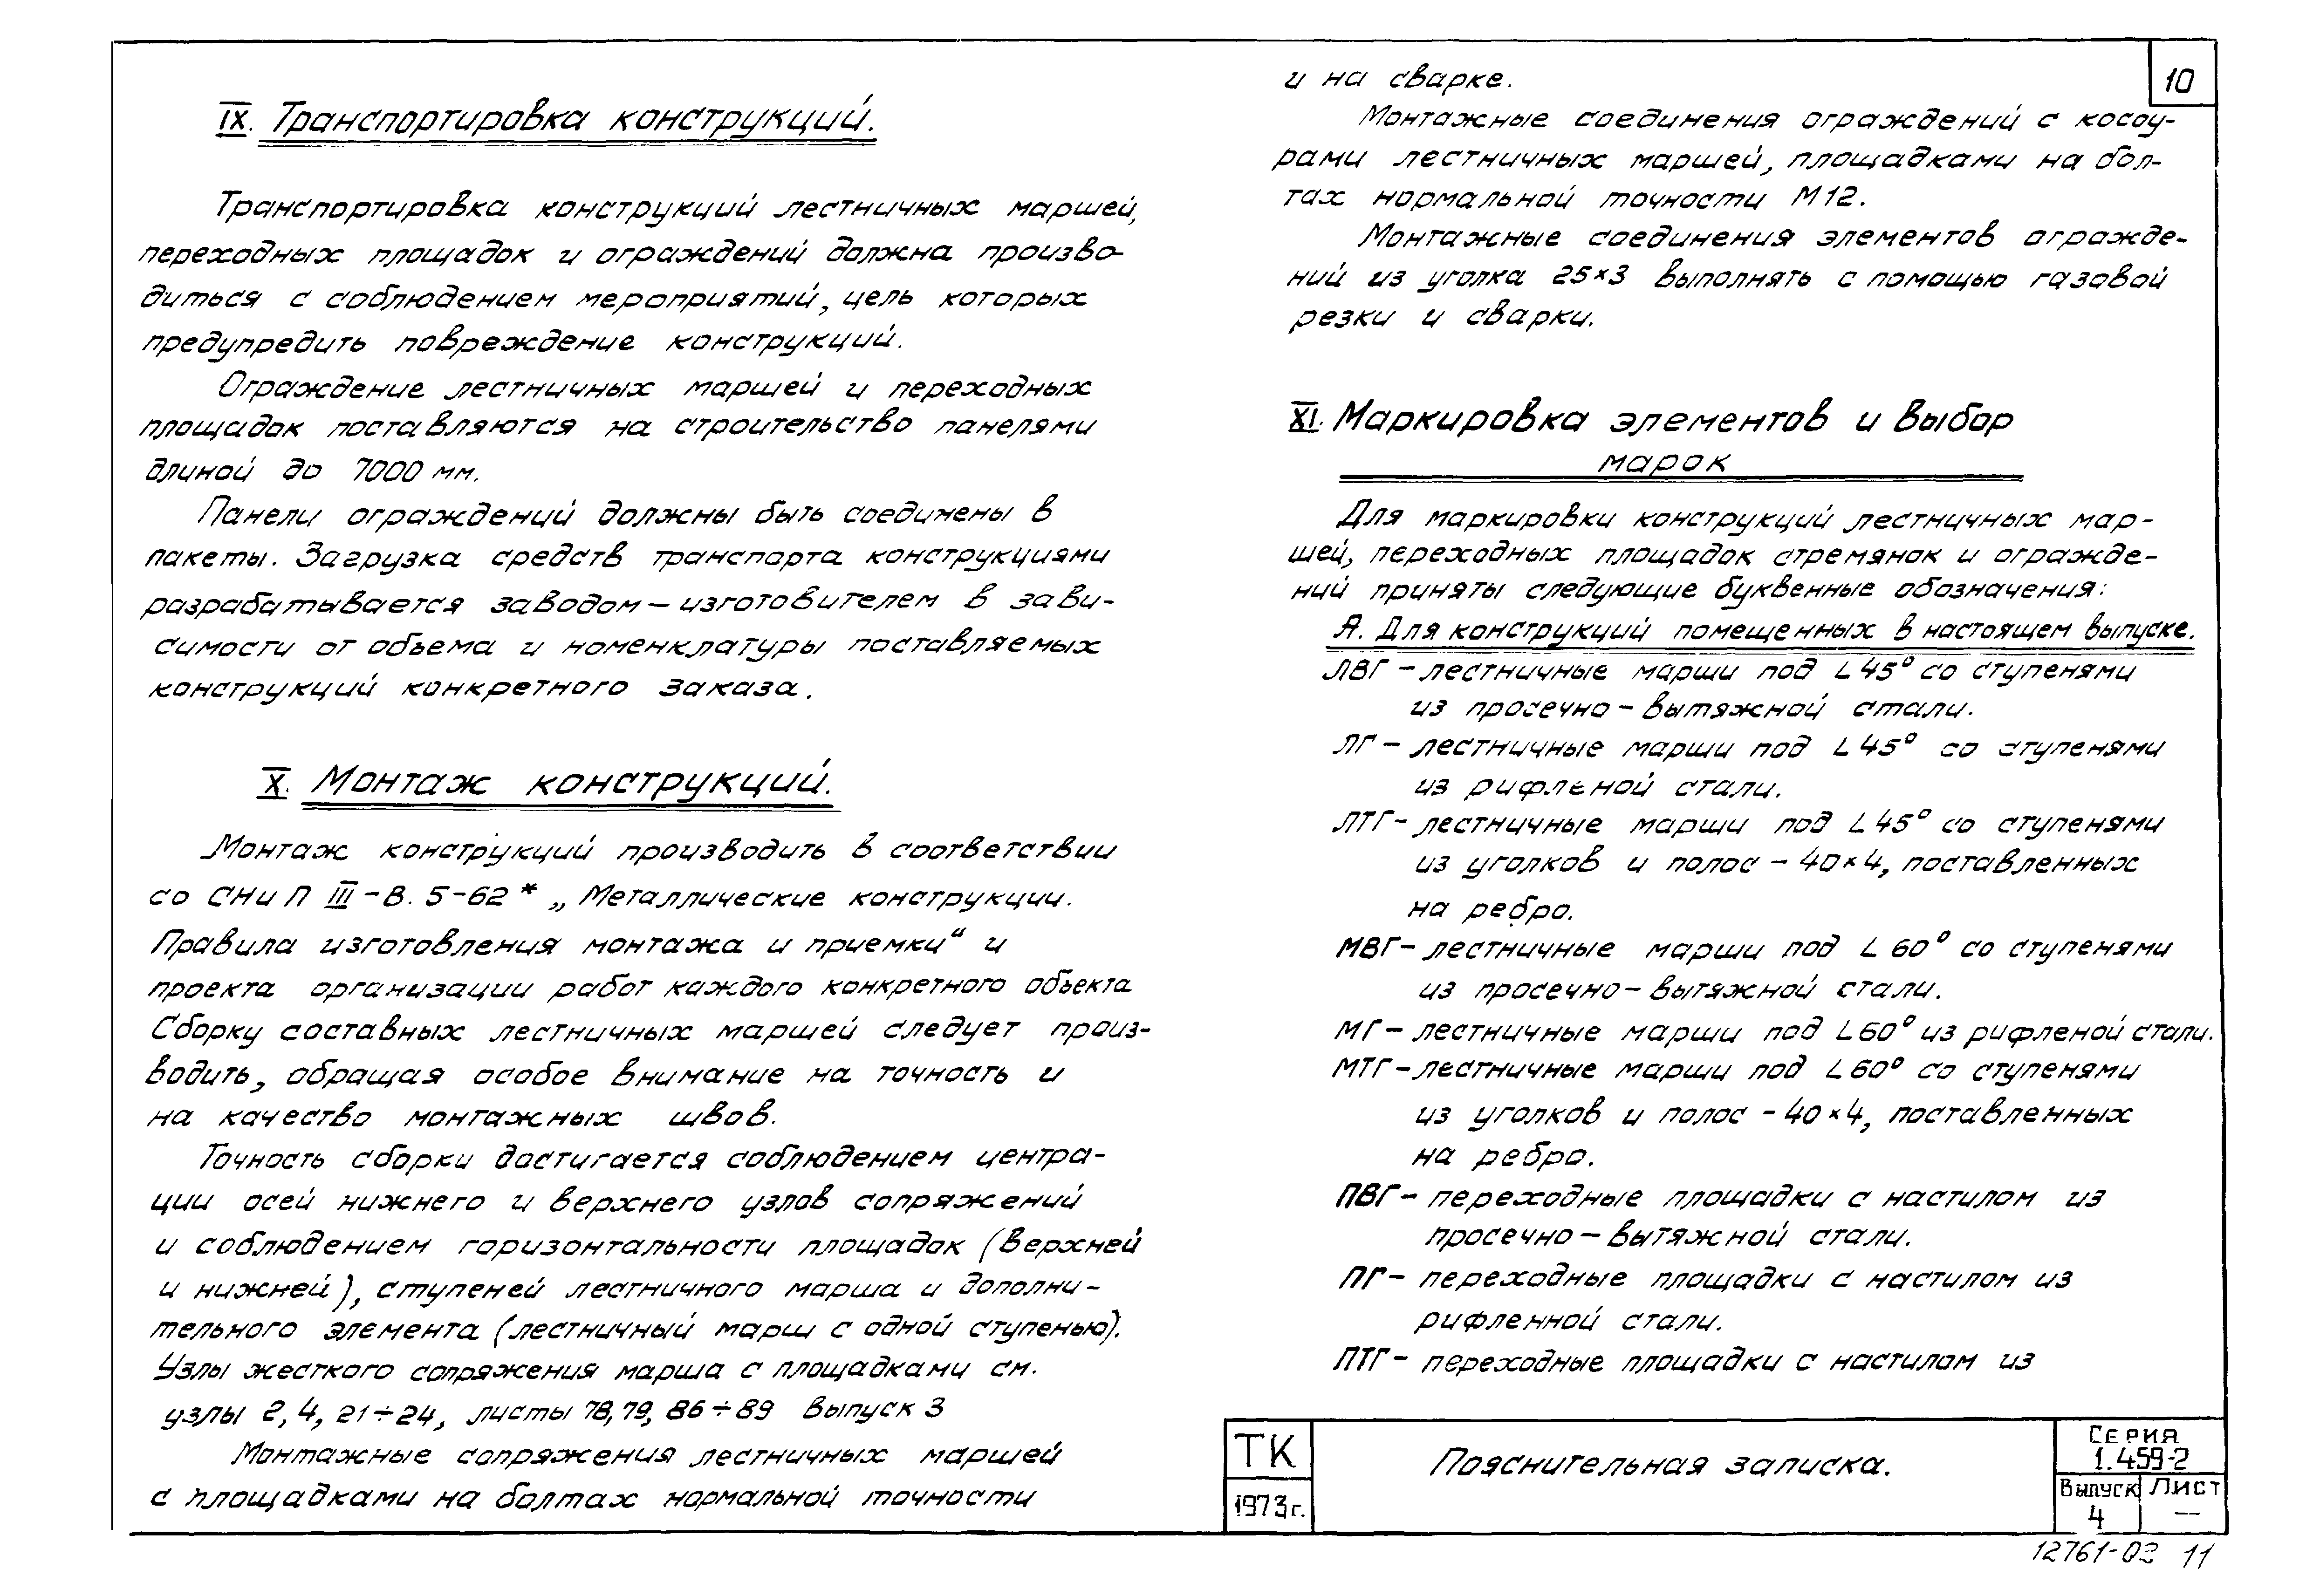 IX. Транспортировка конструкций.
Транспортировка конструкций лестничных маршей,
переходных площадок и ограждений должна произво-
диться с соблюдением мероприятий, цель которых
предупредить повреждение конструкций.
Ограждение лестничных маршей и переходных
площадок поставляются на строительство панелями
длиной до 7000 мм.
Панели ограждений должны быть соединены в
пакеты. Загрузка средств транспорта конструкциями
разрабатывается заводом-изготовителем в зави-
симости от объема и номенклатуры поставляемых
конструкций конкретного заказа.
X. Монтаж конструкций.
Монтаж конструкций производить в соответствии
со СНиП III-В. 5-62* „Металлические конструкции.
Правила изготовления монтажа и приемки“ и
проекта организации работ каждого конкретного объекта
Сборку составных лестничных маршей следует произ-
водить, обращая особое внимание на точность и
на качество монтажных швов.
Точность сборки достигается соблюдением центра-
ции осей нижнего и верхнего узлов сопряжений
и соблюдением горизонтальности площадок (верхней
и нижней), ступеней лестничного марша и дополни-
тельного элемента (лестничный марш с одной ступенью).
Узлы жесткого сопряжения марша с площадками см.
узлы 2, 4, 21÷24, листы 78, 79, 86÷89 выпуск 3
Монтажные сопряжения лестничных маршей
с площадками на болтах нормальной точности
и на сварке.
Монтажные соединения ограждений с косоу-
рами лестничных маршей, площадками на бол-
тах нормальной точности М12.
Монтажные соединения элементов огражде-
ний из уголка 25×3 выполнять с помощью газовой
резки и сварки.
XI. Маркировка элементов и выбор
марок
Для маркировки конструкций лестничных мар-
шей, переходных площадок стремянок и огражде-
ний приняты следующие буквенные обозначения:
А. Для конструкций помещенных в настоящем выпуске.
ЛВГ - лестничные марши под ∠45° со ступенями
из просечно-вытяжной стали.
ЛГ - лестничные марши под ∠45° со ступенями
из рифленой стали.
ЛТГ - лестничные марши под ∠45° со ступенями
из уголков и полос - 40×4, поставленных
на ребро.
МВГ - лестничные марши под ∠60° со ступенями
из просечно-вытяжной стали.
МГ - лестничные марши под ∠60° из рифленой стали.
МТГ - лестничные марши под ∠60° со ступенями
из уголков и полос - 40×4, поставленных
на ребро.
ПВГ - переходные площадки с настилом из
просечно-вытяжной стали.
ПГ - переходные площадки с настилом из
рифленной стали.
ПТГ - переходные площадки с настилом из
10
ТК
1973г.
Пояснительная записка.
Серия
1.459-2
Выпуск Лист
4 —
12761-02 11